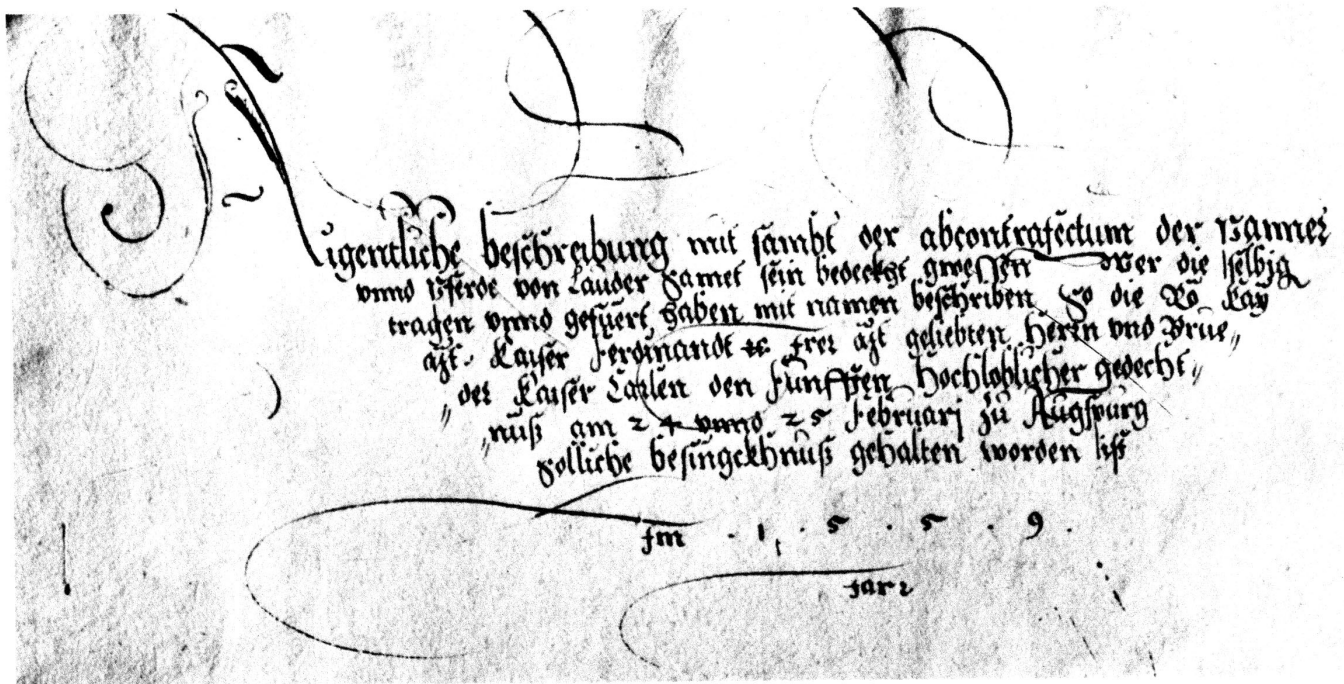 Aigentliche beschreibung mit sambt der abcontrafectum der Panner
vnnd Pferdt von Lauder Samet sein bedeckht gwessen Wer die selbig
tragen vnnd gefüert haben mit namen beschriben So die Rö Kay
Mt. Kaiser Ferdinandt &c. Irer Mt geliebten Herrn vnd Brue„
„der Kaiser Carlen den Fünfften Hochloblicher gedecht„
„nuß am 24 vnnd 25 Februarj zu Augspurg
Solliche besingckhnuß gehalten worden ist
Im . 1 . 5 . 5 . 9 .
Jar